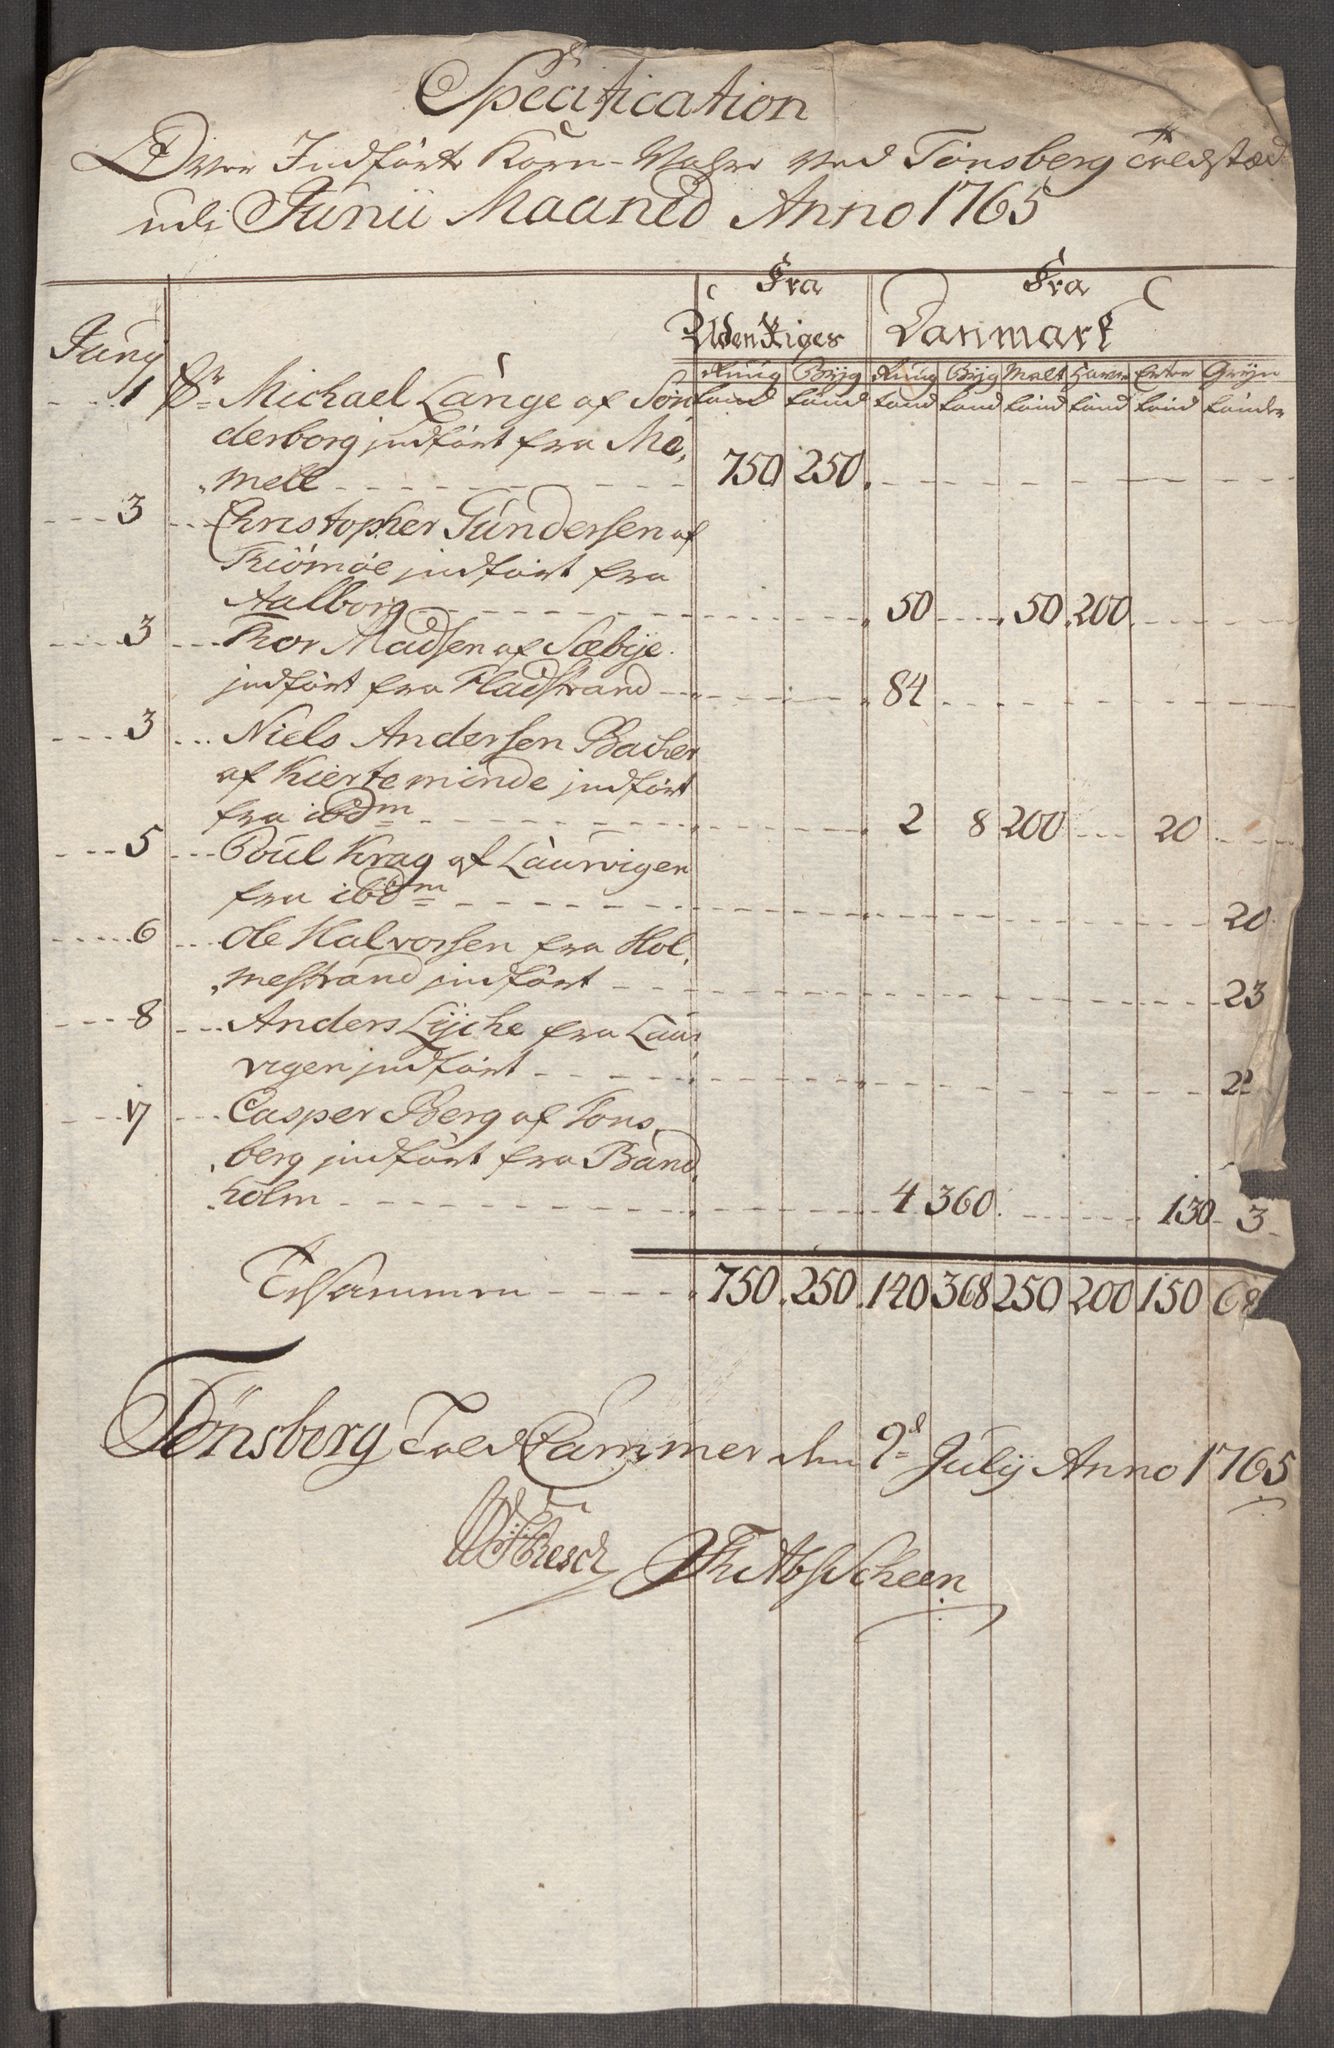 Specification
Over Indførte Korn-Vahre ved Tønsberg Toldstæd
udi Junii Maaned Anno 1765
Fra Fra
Udenriges Danmark
Junij
Ruug Byg Ruug Byg Malt Havre Erter Gryn
1 Sr Michael Lange af Søn tønd tønd tønd tønd tønd tønd tønd tønder
derborg indført fra Me,
mell 750 250
3 Christopher Gundersen af
Tiømøe indført fra
Aalborg 50 50 200
3 Thor Madsen af Sæbye
indført fra Fladstrand 84
3 Niels Andersen Bacher
af Kierteminde indført
fra ibdm 2 8 200 20
5 Poul Krag af Laurvigen
fra ibdm 20
6 Ole Halvorsen fra Hol,
mestrand indført 23
8 Anders Lyche fra Laur
vigen indført 2
17 Casper Berg af Tøns,
berg indført fra Band
holm 4 360 130 3
Tilsammen 750 250 140 368 250 200 150 68
Tønsberg Told Cammer den 9d July Anno 1765
Resch Th Abs Scheen